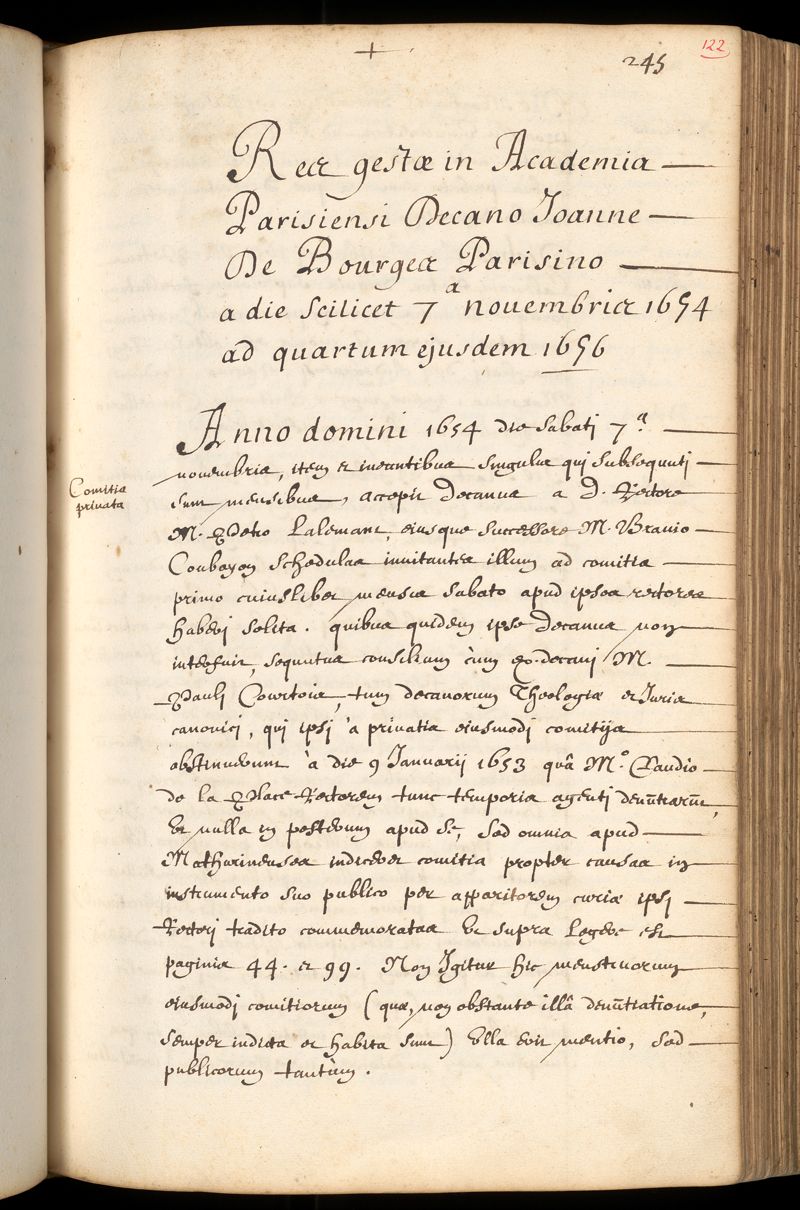 +
245
122
Res gestæ in Academia
Parisiensi Decano Joanne
De Bourges Parisino
a die scilicet 7ᵃ nouembris 1654
ad quartum ejusdem 1656
Anno domini 1654 die Sabati 7ᵃ.
nouembris, item et ineuntibus singulis qui subsequuti
Comitia
privata
sunt mensibus, accepit Decanus a D. Rectore
M. Petro Lalemant, eiusque successore M.
Coubayon schedulas inuitantes illum ad comitia
primo cuiuslibet mensis sabato apud ipsos rectores
haberj solita. quibus quidem ipse Decanus non
interfuit, sequutus consilium cùm ex-decani M.
Pauli Courtois, tum decanorum Theologiæ et Juris
canonicj, qui ipsj à privatis eiusmodj comitijs
abstinuerunt à die 9 Januarij 1653 quâ M.º Claudio
de la Place Rectorem tunc temporis agentj denũtiarũt,
Et nulla in posterum apud se, sed omnia apud
Mathurinenses indiceret comitia propter causas in
instrumento suo publico per apparitorem curiæ ipsj
Rectorj tradito commemoratas Et supra legere est
paginis 44. et 99. Non Igitur hic menstruorum
eiusmodj comitiorum (quæ, non obstante illâ denũtiatione,
semper indicta et habita sunt) Ulla erit mentio, sed
publicorum tantùm.